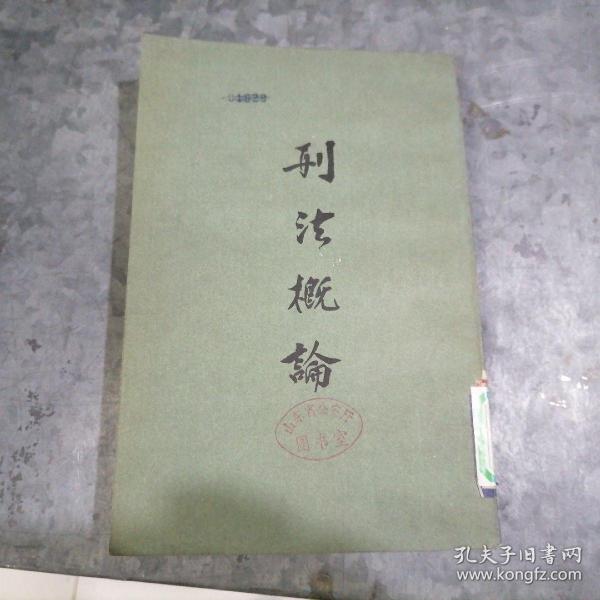 01629
刑法概論
山东省公安厅
图书室
孔夫子旧书网
www.kongfz.com